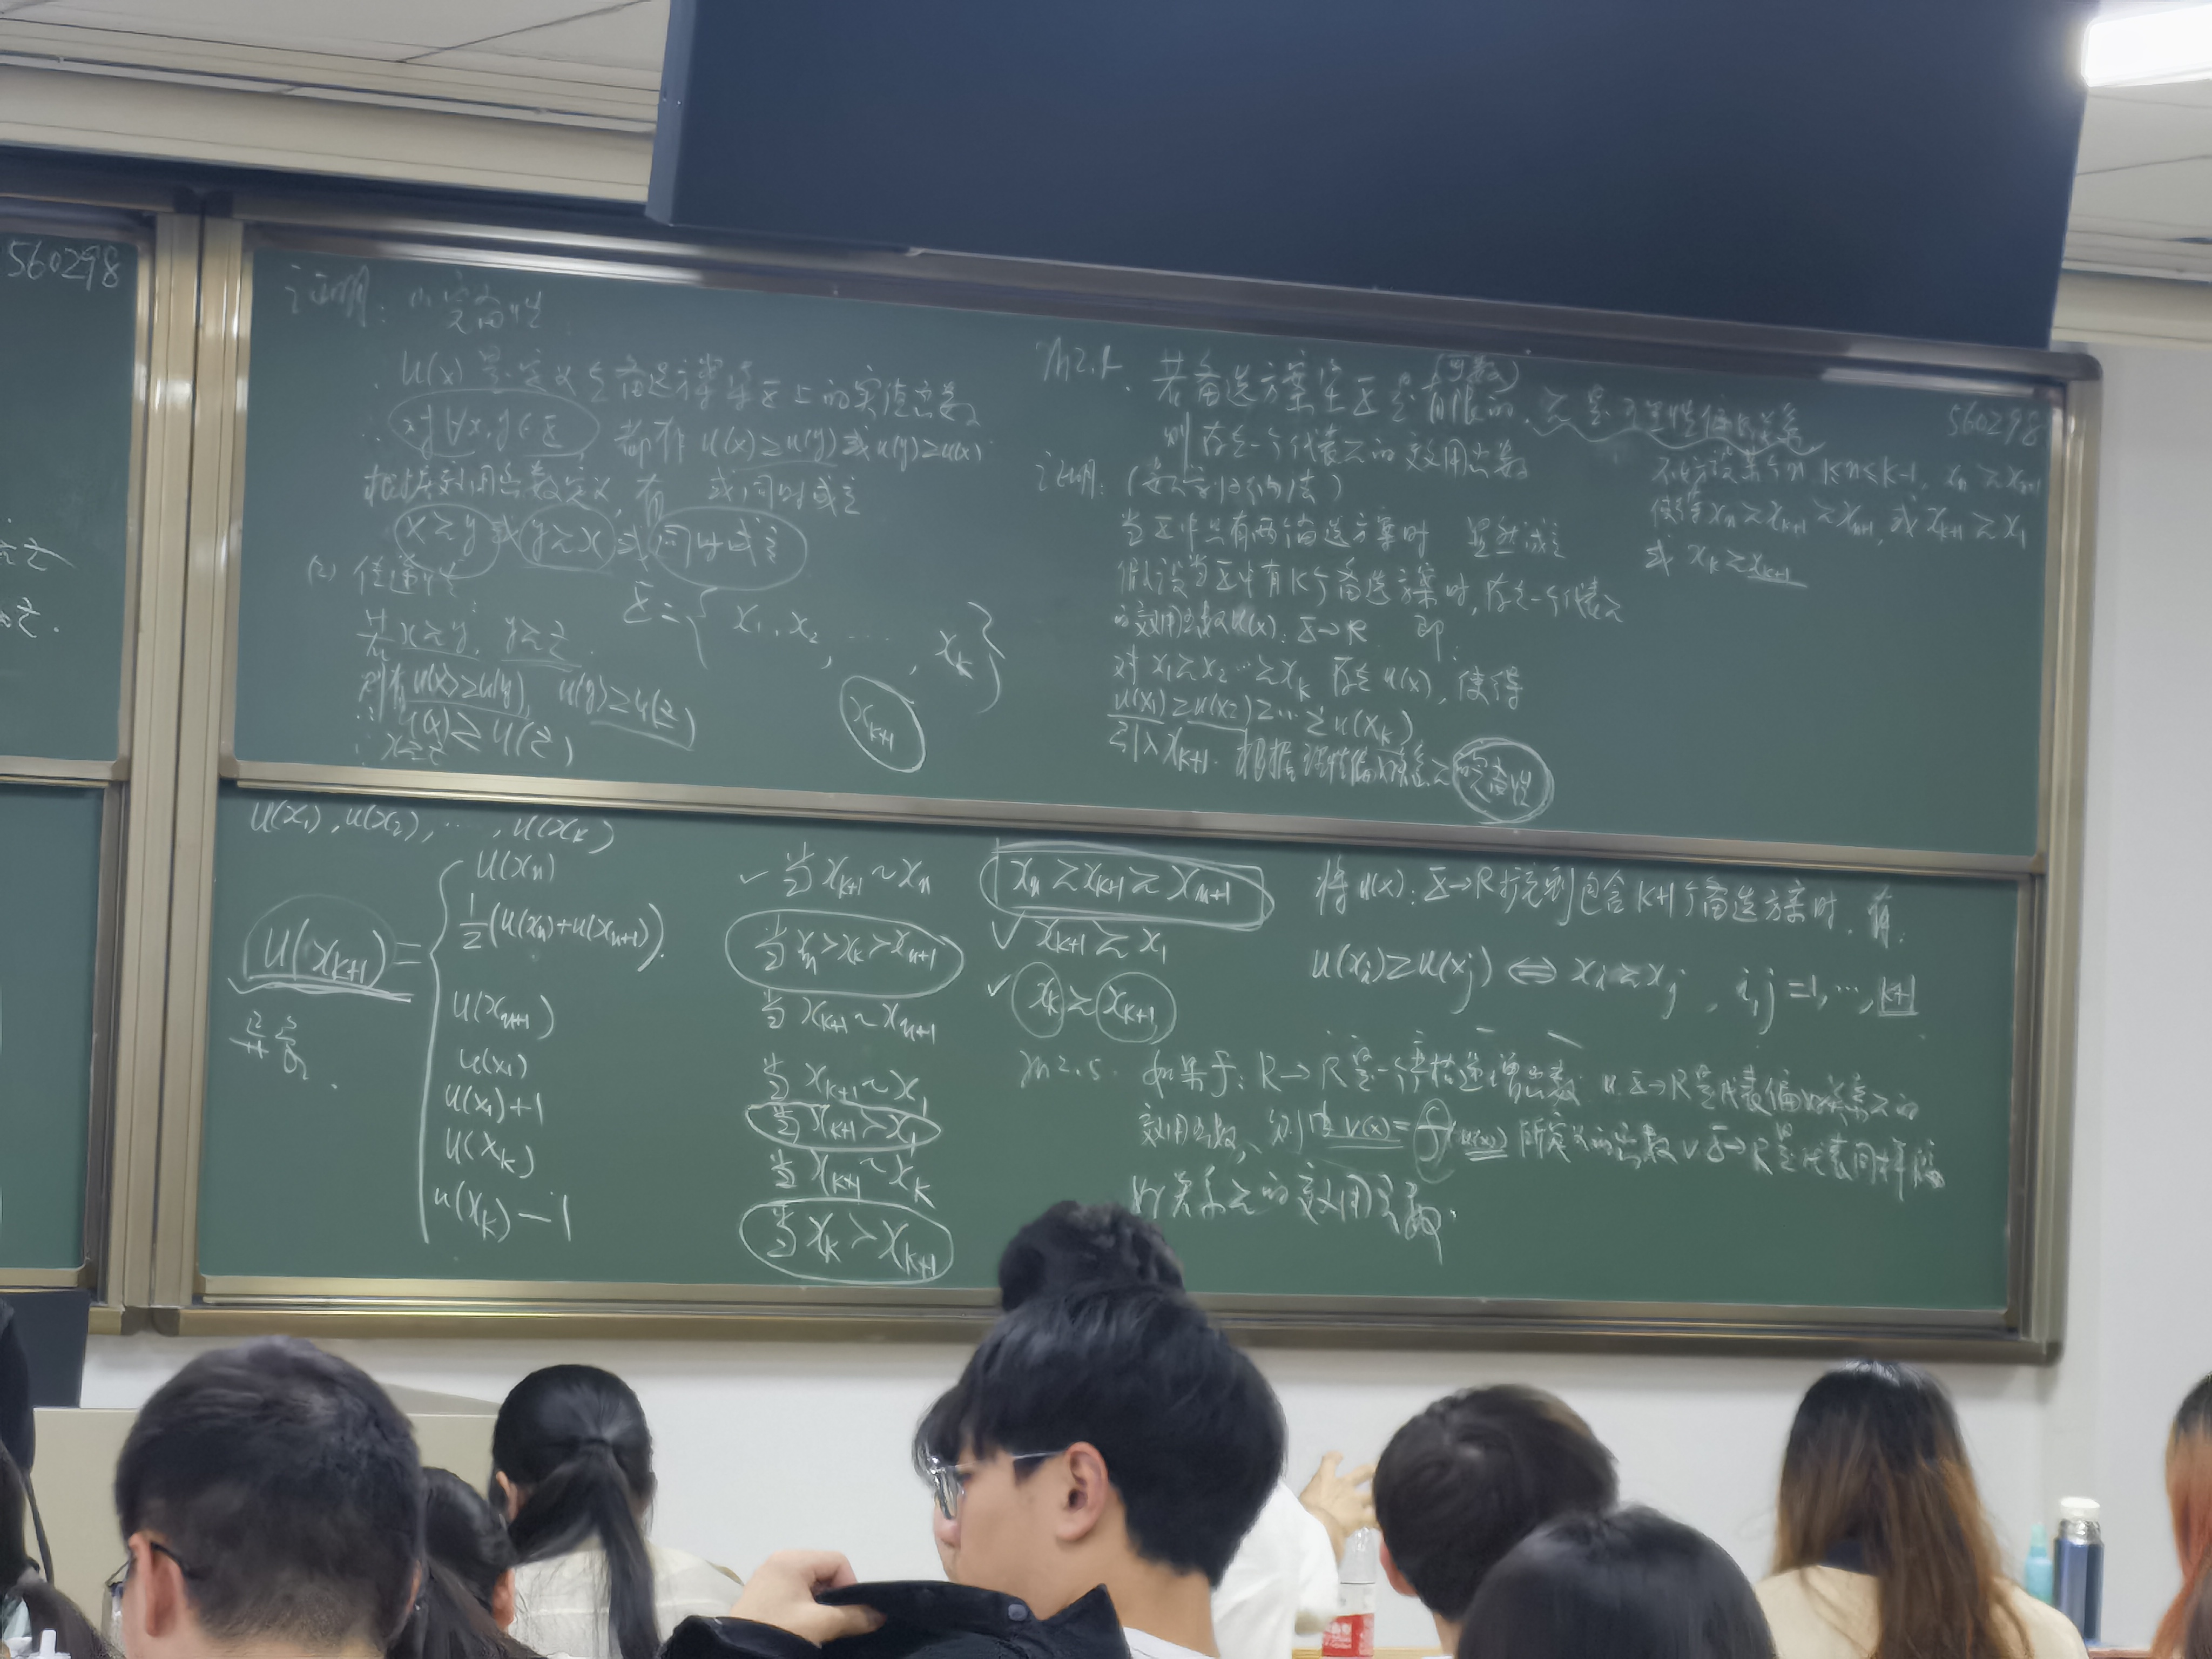 560298
证明: (1) 完备性
∵ u(x) 是定义在备选方案集 X 上的实值函数
∴ 对∀x,y∈X 都有 u(x)≥u(y) 或 u(y)≥u(x)
根据效用函数定义, 有 或同时成立
x≿y 或 y≿x 或 同时成立
(2) 传递性
若 x≿y, y≿z.
则有 u(x)≥u(y), u(y)≥u(z)
∴ u(x)≥u(z)
∴ x≿z
X={x₁, x₂, ⋯, x_k}
x_{k+1}
若备选方案集 X 是有限的, ≿是理性偏好关系
(可数)
则存在一个代表≿的效用函数
证明: (数学归纳法)
当 X 中只有两个备选方案时 显然成立
假设当 X 中有 K 个备选方案时, 存在一个代表≿
的效用函数 u(x): X→R 即:
对 x₁≿x₂⋯≿x_k 存在 u(x), 使得
u(x₁)≥u(x₂)≥⋯≥u(x_k)
引入 x_{k+1}. 根据理性偏好关系≿ 完备性
560298
不妨设某个 n 1≤n≤k-1, x_n≿x_{n+1}
使得 x_n≿x_{k+1}≿x_{n+1}, 或 x_{k+1}≿x₁
或 x_k≿x_{k+1}
u(x₁), u(x₂), ⋯, u(x_k)
u(x_{k+1}) =
u(x_n) ✓ 当 x_{k+1}~x_n
½(u(x_n)+u(x_{n+1})). 当 x_n>x_k>x_{n+1}
u(x_{n+1}) 当 x_{k+1}~x_{n+1}
u(x₁) 当 x_{k+1}~x₁
u(x₁)+1 当 x_{k+1}>x₁
u(x_k) 当 x_{k+1}~x_k
u(x_k)-1 当 x_k>x_{k+1}
x_n≿x_{k+1}≿x_{n+1}
✓ x_{k+1}≿x₁
✓ x_k≿x_{k+1}
将 u(x): X→R 扩充到包含 k+1 个备选方案时, 有:
u(x_i)≥u(x_j) ⇔ x_i≿x_j, i,j=1,⋯,k+1
2.5. 如果 f: R→R 是一个严格递增函数 u: X→R 是代表偏好关系≿的
效用函数, 则由 v(x)=f(u(x)) 所定义的函数 v: X→R 是代表同样偏
好关系≿的效用函数.